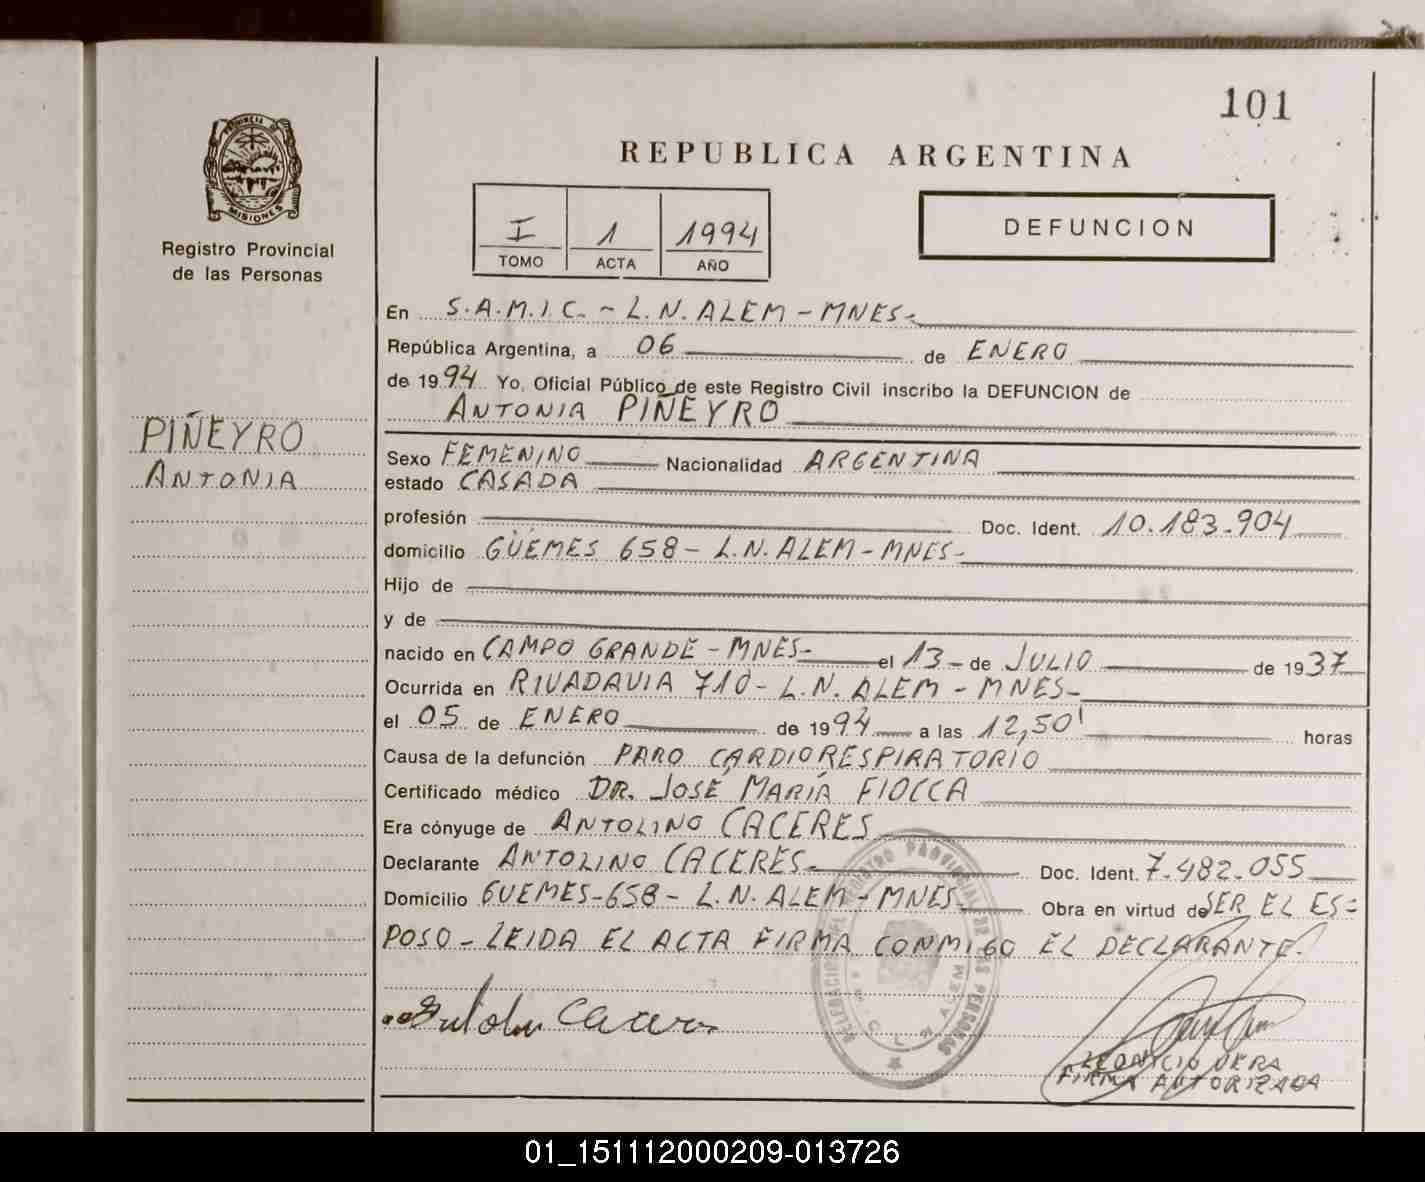 101
PROVINCIA DE
MISIONES
Registro Provincial
de las Personas
REPUBLICA ARGENTINA
I 1 1994
TOMO ACTA AÑO
DEFUNCION
En S.A.M.I.C. - L.N. ALEM - MNES-
República Argentina, a 06 de ENERO
de 1994 Yo, Oficial Público de este Registro Civil inscribo la DEFUNCION de
ANTONIA PIÑEYRO
PIÑEYRO
ANTONIA
Sexo FEMENINO Nacionalidad ARGENTINA
estado CASADA
profesión Doc. Ident. 10.183.904
domicilio GÜEMES 658 - L.N. ALEM - MNES-
Hijo de
y de
nacido en CAMPO GRANDE - MNES- el 13 - de JULIO de 1937
Ocurrida en RIVADAVIA 710 - L.N. ALEM - MNES-
el 05 de ENERO de 1994 a las 12,50' horas
Causa de la defunción PARO CARDIORESPIRATORIO
Certificado médico DR. JOSÉ MARÍA FIOCCA
Era cónyuge de ANTOLINO CACERES
Declarante ANTOLINO CACERES- Doc. Ident. 7.482.055
Domicilio GUEMES-658 - L.N. ALEM - MNES- Obra en virtud de SER EL ES=
POSO - LEIDA EL ACTA FIRMA CONMIGO EL DECLARANTE.
LEONICIO VERA
FIRMA AUTORIZADA
01_151112000209-013726